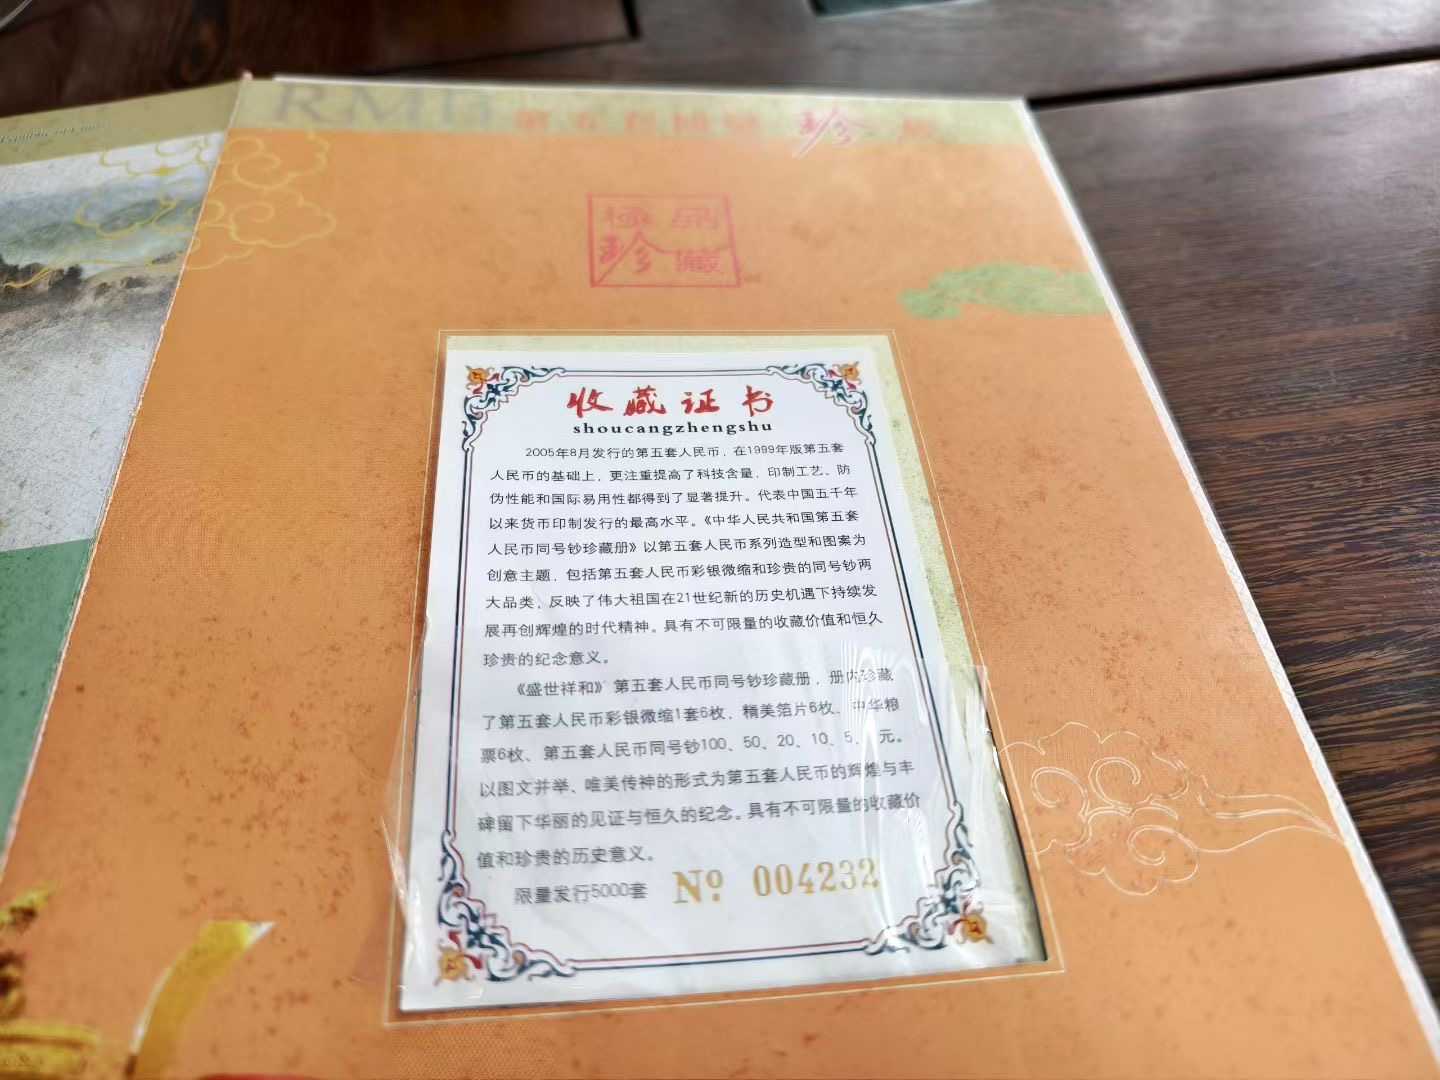 RMB
第五套同号 珍 藏
極品
珍藏
收藏证书
shoucangzhengshu
2005年8月发行的第五套人民币，在1999年版第五套
人民币的基础上，更注重提高了科技含量，印制工艺、防
伪性能和国际易用性都得到了显著提升。代表中国五千年
以来货币印制发行的最高水平。《中华人民共和国第五套
人民币同号钞珍藏册》以第五套人民币系列造型和图案为
创意主题，包括第五套人民币彩银微缩和珍贵的同号钞两
大品类，反映了伟大祖国在21世纪新的历史机遇下持续发
展再创辉煌的时代精神。具有不可限量的收藏价值和恒久
珍贵的纪念意义。
《盛世祥和》第五套人民币同号钞珍藏册，册内珍藏
了第五套人民币彩银微缩1套6枚、精美箔片6枚、中华粮
票6枚、第五套人民币同号钞100、50、20、10、5、元。
以图文并举、唯美传神的形式为第五套人民币的辉煌与丰
碑留下华丽的见证与恒久的纪念。具有不可限量的收藏价
值和珍贵的历史意义。
限量发行5000套 Nº 004232